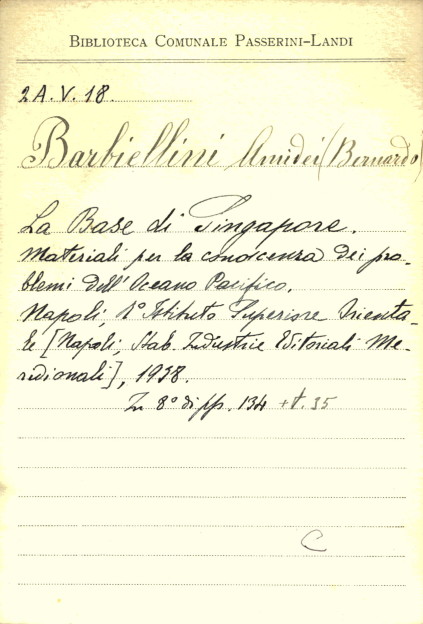 BIBLIOTECA COMUNALE PASSERINI-LANDI
2A.V.18.
Barbiellini Amidei (Bernardo)
La Base di Singapore.
Materiali per la conoscenza dei pro-
blemi dell'Oceano Pacifico.
Napoli, R° Istituto Superiore Orienta-
le [Napoli, Stab. Industrie Editoriali Me-
ridionali], 1938.
In 8° di pp. 134 + t. 35
C